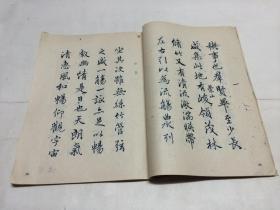 禊事也群賢畢至少長
咸集此地有崇山峻領茂林
脩竹又有清流激湍暎帶
左右引以為流觴曲水列
坐其次雖無絲竹管弦
之盛一觴一詠亦足以暢
敘幽情是日也天朗氣
清惠風和暢仰觀宇宙